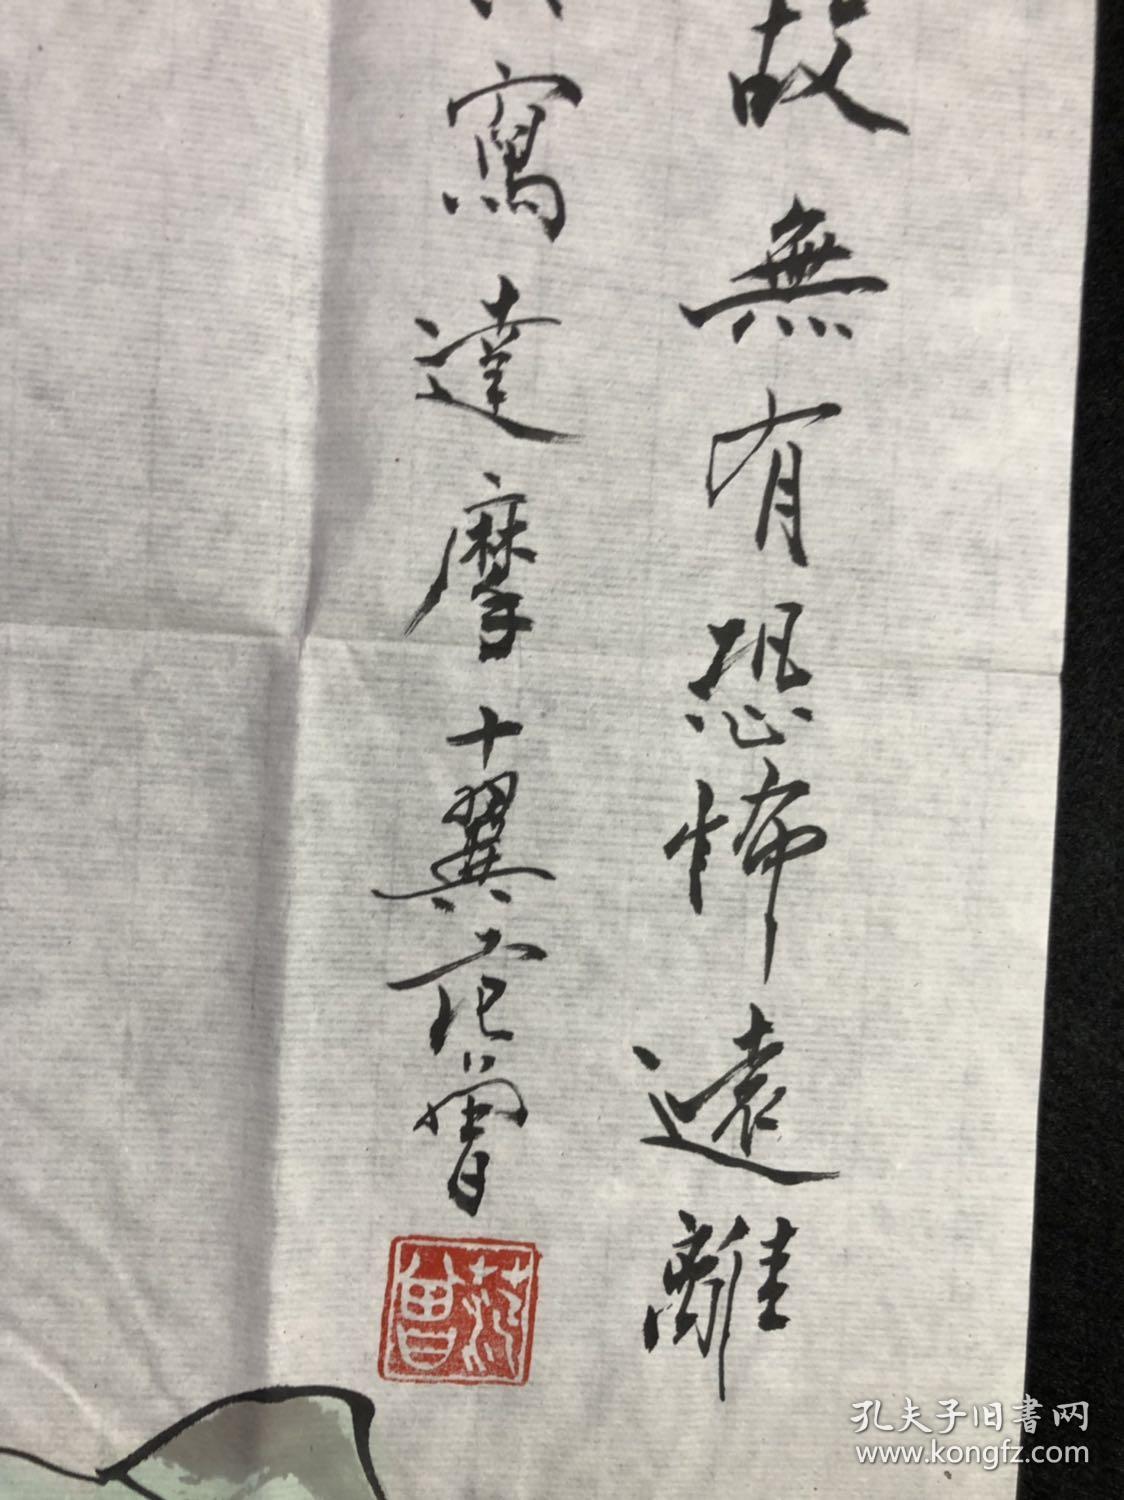 故無有恐怖遠離
寫達摩十翼范曾
范曾
孔夫子旧書网
www.kongfz.com